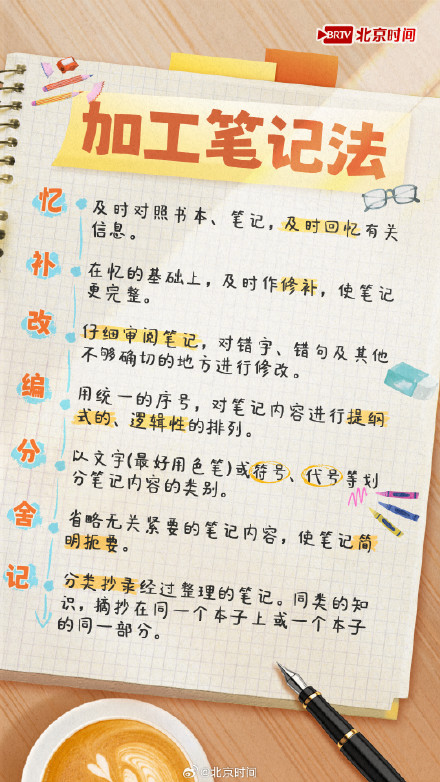 BRTV 北京时间
加工笔记法
忆
及时对照书本、笔记,及时回忆有关
信息。
补
在忆的基础上,及时作修补,使笔记
更完整。
改
仔细审阅笔记,对错字、错句及其他
不够确切的地方进行修改。
编
用统一的序号,对笔记内容进行提纲
式的、逻辑性的排列。
分
以文字(最好用色笔)或符号、代号等划
分笔记内容的类别。
舍
省略无关紧要的笔记内容,使笔记简
明扼要。
记
分类抄录经过整理的笔记。同类的知
识,摘抄在同一个本子上或一个本子
的同一部分。
@北京时间